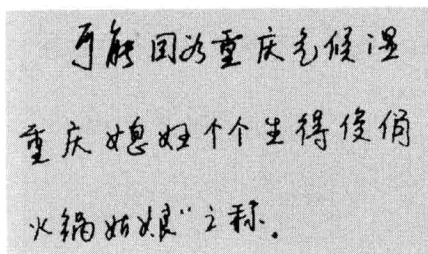 可能因为重庆气候湿
重庆媳妇个个生得俊俏
火锅姑娘"之称。